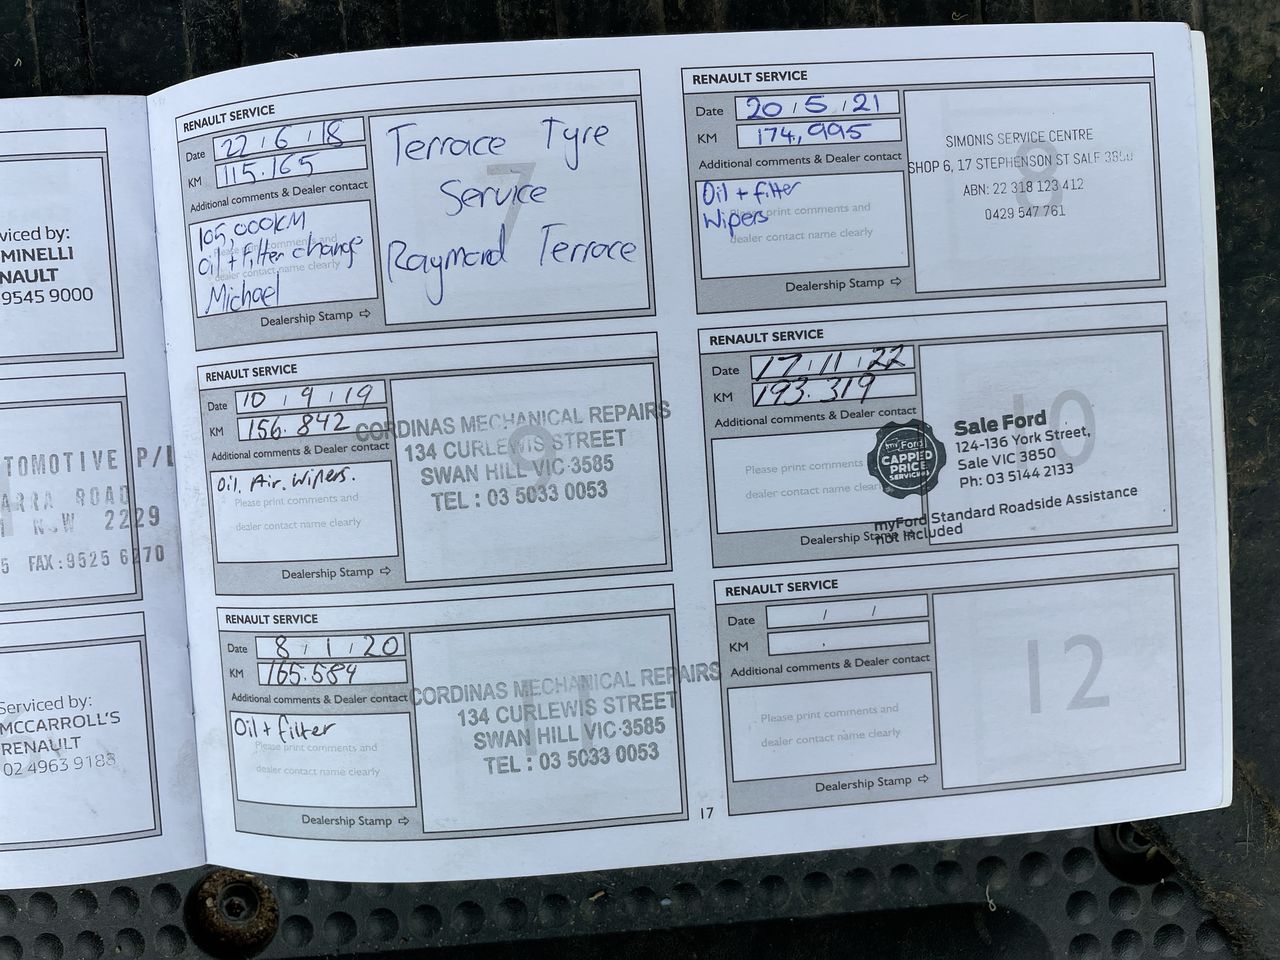 viced by:
MINELLI
NAULT
9545 9000
TOMOTIVE P/L
ARRA ROAD
NSW 2229
5 FAX:9525 6270
Serviced by:
MCCARROLL'S
RENAULT
02 4963 9188
RENAULT SERVICE
Date 22/6/18
KM 115.165
Additional comments & Dealer contact
105,000KM
Oil + filter change
Michael
Please print comments and
dealer contact name clearly
Dealership Stamp ⇨
7
Terrace Tyre
Service
Raymond Terrace
RENAULT SERVICE
Date 20/5/21
KM 174,995
Additional comments & Dealer contact
Oil + filter
Wipers
Please print comments and
dealer contact name clearly
Dealership Stamp ⇨
8
SIMONIS SERVICE CENTRE
SHOP 6, 17 STEPHENSON ST SALE 3850
ABN: 22 318 123 412
0429 547 761
RENAULT SERVICE
Date 10/9/19
KM 156.842
Additional comments & Dealer contact
Oil. Air. Wipers.
Please print comments and
dealer contact name clearly
Dealership Stamp ⇨
CORDINAS MECHANICAL REPAIRS
134 CURLEWIS STREET
SWAN HILL VIC 3585
TEL : 03 5033 0053
RENAULT SERVICE
Date 17/11/22
KM 193.319
Additional comments & Dealer contact
Please print comments
dealer contact name clearly
Dealership Stamp ⇨
10
my Ford
CAPPED
PRICE
SERVICING
Sale Ford
124-136 York Street,
Sale VIC 3850
Ph: 03 5144 2133
myFord Standard Roadside Assistance
not included
RENAULT SERVICE
Date 8/1/20
KM 165.584
Additional comments & Dealer contact
Oil + filter
Please print comments and
dealer contact name clearly
Dealership Stamp ⇨
11
CORDINAS MECHANICAL REPAIRS
134 CURLEWIS STREET
SWAN HILL VIC 3585
TEL : 03 5033 0053
RENAULT SERVICE
Date / /
KM .
Additional comments & Dealer contact
Please print comments and
dealer contact name clearly
Dealership Stamp ⇨
12
17